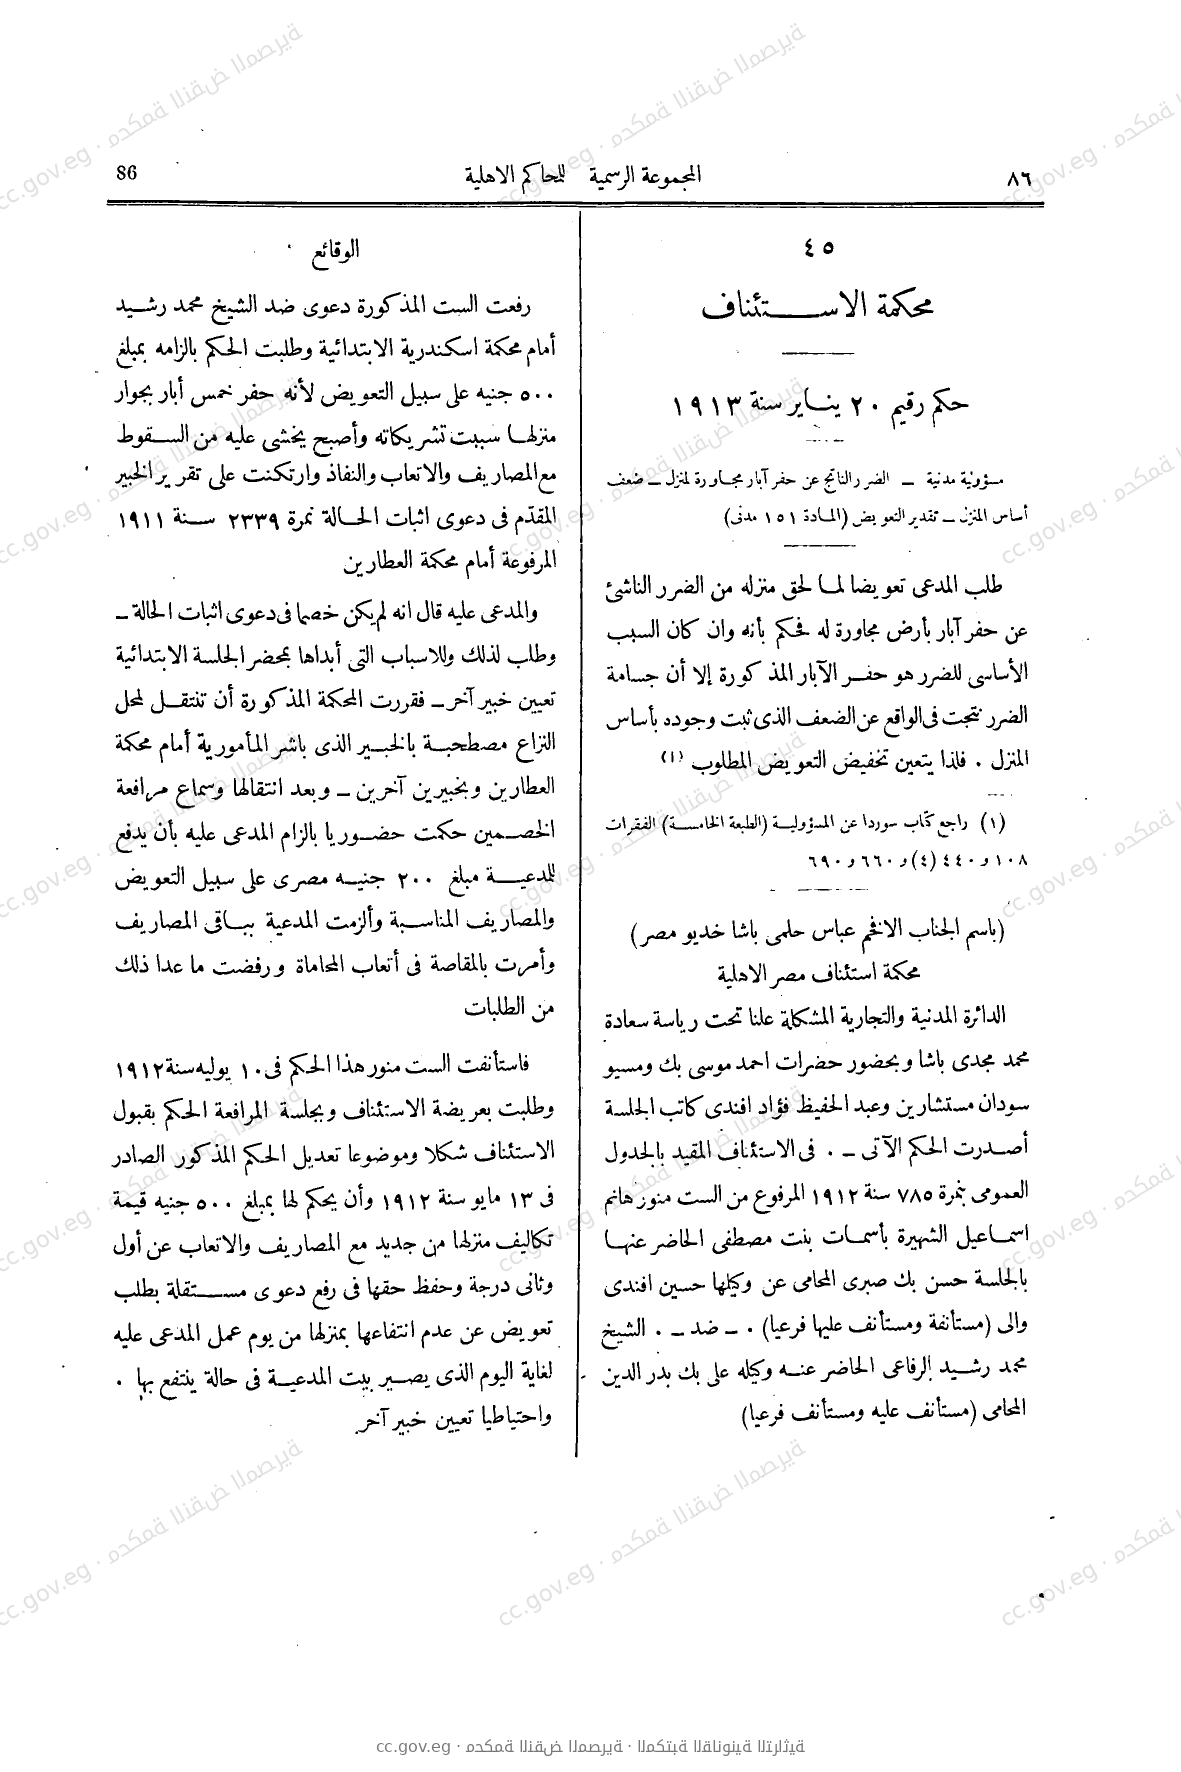 ٨٦
المجموعة الرسمية للمحاكم الاهلية
86
٤٥
محكمة الاستئناف
حكم رقيم ٢٠ يناير سنة ١٩١٣
مسؤولية مدنية ــ الضرر الناتج عن حفر آبار مجاورة لمنزل ــ ضعف
أساس المنزل ــ تقدير التعويض (المادة ١٥١ مدنى)
طلب المدعى تعويضا لما لحق منزله من الضرر الناشئ
عن حفر آبار بأرض مجاورة له فحكم بأنه وان كان السبب
الأساسى للضرر هو حفر الآبار المذكورة إلا أن جسامة
الضرر نتجت فى الواقع عن الضعف الذى ثبت وجوده بأساس
المنزل ٠ فلذا يتعين تخفيض التعويض المطلوب (١)
(١) راجع كتاب سوردا عن المسؤولية (الطبعة الخامسة) الفقرات
١٠٨ و ٤٤٠ (٤) و ٦٦٠ و ٦٩٠
(باسم الجناب الافخم عباس حلمى باشا خديو مصر)
محكمة استئناف مصر الاهلية
الدائرة المدنية والتجارية المشكلة علنا تحت رياسة سعادة
محمد مجدى باشا وبحضور حضرات احمد موسى بك ومسيو
سودان مستشارين وعبد الحفيظ فؤاد افندى كاتب الجلسة
أصدرت الحكم الآتى ــ ٠ فى الاستئناف المقيد بالجدول
العمومى بنمرة ٧٨٥ سنة ١٩١٢ المرفوع من الست منور هانم
اسماعيل الشهيرة بأسمات بنت مصطفى الحاضر عنها
بالجلسة حسن بك صبرى المحامى عن وكيلها حسين افندى
والى (مستأنفة ومستأنف عليها فرعيا) ٠ ــ ضد ــ ٠ الشيخ
محمد رشيد الرفاعى الحاضر عنه وكيله على بك بدر الدين
المحامى (مستأنف عليه ومستأنف فرعيا)
الوقائع
رفعت الست المذكورة دعوى ضد الشيخ محمد رشيد
أمام محكمة اسكندرية الابتدائية وطلبت الحكم بالزامه بمبلغ
٥٠٠ جنيه على سبيل التعويض لأنه حفر خمس أبار بجوار
منزلها سببت تشريكاته وأصبح يخشى عليه من السقوط
مع المصاريف والاتعاب والنفاذ وارتكنت على تقرير الخبير
المقدّم فى دعوى اثبات الحالة نمرة ٢٣٣٩ سنة ١٩١١
المرفوعة أمام محكمة العطارين
والمدعى عليه قال انه لم يكن خصما فى دعوى اثبات الحالة ــ
وطلب لذلك وللاسباب التى أبداها بمحضر الجلسة الابتدائية
تعيين خبير آخر ــ فقررت المحكمة المذكورة أن تنتقل لمحل
النزاع مصطحبة بالخبير الذى باشر المأمورية أمام محكمة
العطارين وبخبيرين آخرين ــ وبعد انتقالها وسماع مرافعة
الخصمين حكمت حضوريا بالزام المدعى عليه بأن يدفع
للمدعية مبلغ ٢٠٠ جنيه مصرى على سبيل التعويض
والمصاريف المناسبة وألزمت المدعية بباقى المصاريف
وأمرت بالمقاصة فى أتعاب المحاماة ورفضت ما عدا ذلك
من الطلبات
فاستأنفت الست منور هذا الحكم فى ١٠ يوليه سنة ١٩١٢
وطلبت بعريضة الاستئناف وبجلسة المرافعة الحكم بقبول
الاستئناف شكلا وموضوعا تعديل الحكم المذكور الصادر
فى ١٣ مايو سنة ١٩١٢ وأن يحكم لها بمبلغ ٥٠٠ جنيه قيمة
تكاليف منزلها من جديد مع المصاريف والاتعاب عن أول
وثانى درجة وحفظ حقها فى رفع دعوى مستقلة بطلب
تعويض عن عدم انتفاعها بمنزلها من يوم عمل المدعى عليه
لغاية اليوم الذى يصير بيت المدعية فى حالة ينتفع بها ٠
واحتياطيا تعيين خبير آخر
cc.gov.eg · محكمة النقض المصرية · المكتبة القانونية التراثية